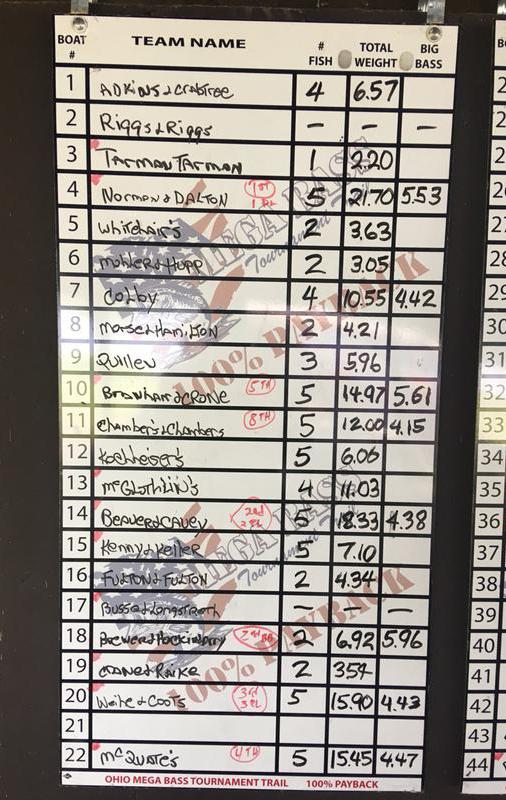 BOAT # TEAM NAME # FISH TOTAL WEIGHT BIG BASS
1 ADKINS & CRABTREE 4 6.57
2 Riggs & Riggs – – –
3 TARMAN TARMAN 1 2.20
4 NORMAN & DALTON 1ST 5 21.70 5.53
5 Whitehairs 2 3.63
6 Mohler & Hupp 2 3.05
7 COLBY 4 10.55 4.42
8 Morse & HAMILTON 2 4.21
9 Quillen 3 5.96
10 BRANHAM & CRONE 5TH 5 14.97 5.61
11 Chambers & Chambers 8TH 5 12.00 4.15
12 Kochheiser's 5 6.06
13 McGLOTHLIN'S 4 11.03
14 BEAVER & CAUEY 2nd 5 18.33 4.38
15 Kenny & Keller 5 7.10
16 FULTON & FULTON 2 4.34
17 Busse & Longstreth – – –
18 Brewer & 2nd BB 2 6.92 5.96
19 & Raike 2 3.54
20 Waite & COOTS 3rd 5 15.90 4.43
21
22 McQUATE'S 4TH 5 15.45 4.47
MEGA BASS
Tournament
100% PAYBACK
MEGA BASS
Tournament
100% PAYBACK
OHIO MEGA BASS TOURNAMENT TRAIL 100% PAYBACK
31
32
33
34
35
36
37
38
39
40
41
42
43
44